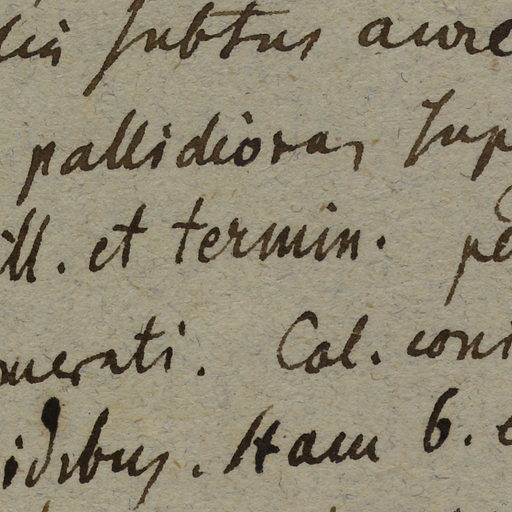 subtus aure
pallidiora, sup
ill. et termin. pe
merati. Cal. coni
idibus. Stam 6. e